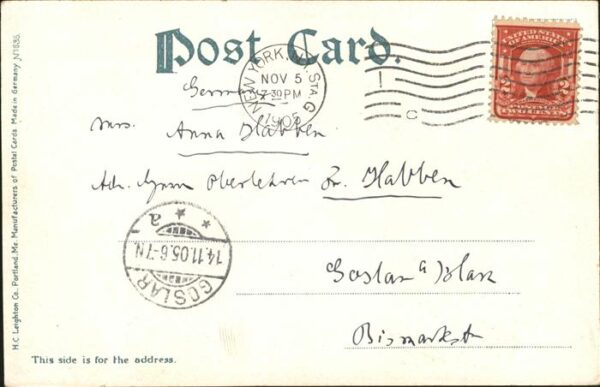 Post Card.
UNITED STATES
OF AMERICA
2 2
POSTAGE
TWO CENTS
NEW YORK, N.Y. STA. G
NOV 5
7 30 PM
1905
C
Germany
Mrs. Anna Habben
Adr. Herrn Oberlehrer Dr. Habben
Goslar a Harz
Bismarckst
GOSLAR
14.11.05.6-7N.
* * a
H.C. Leighton Co. Portland, Me. Manufacturers of Postal Cards. Made in Germany N1636
This side is for the address.